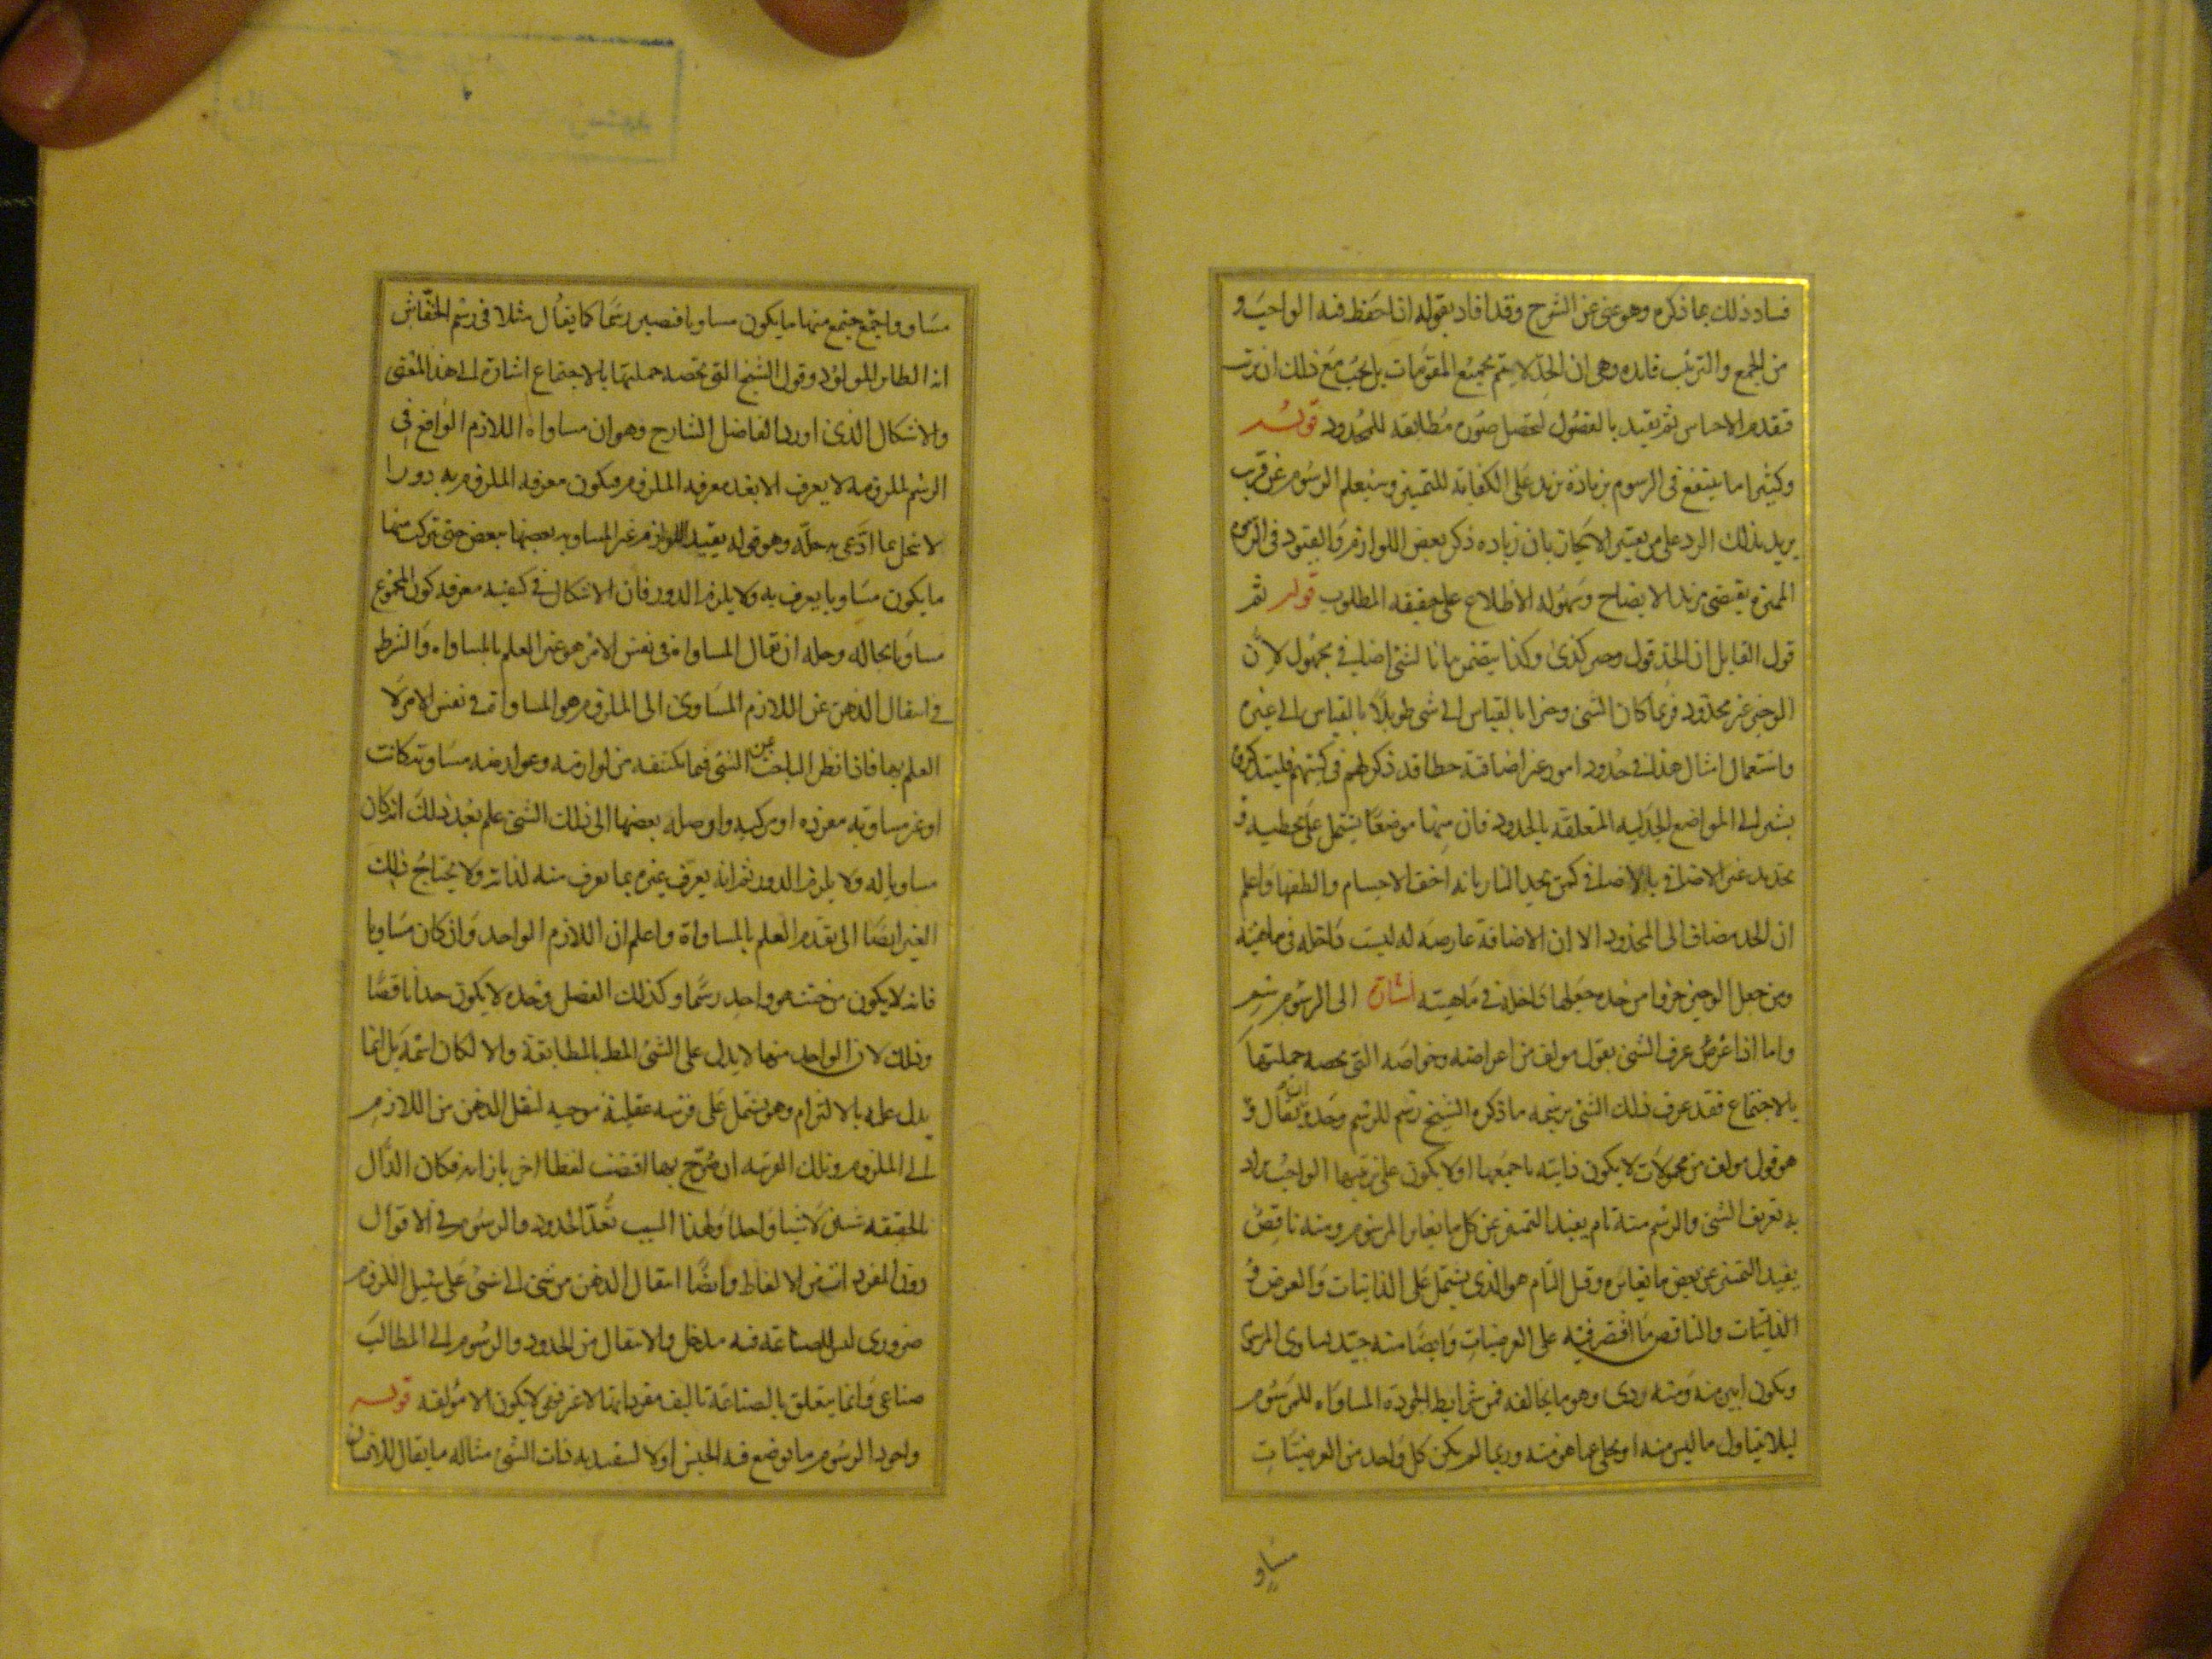 فساد ذلك بما ذكره وهو غنى عن الشرح وقد افاد بقوله اذا حفظ فيه الواجب و
من الجمع والترتيب فايده وهى ان الحد لا يتم بجميع المقومات بل يجب مع ذلك ان ترتب
فتقدم الاجناس ثم تقيد بالفصول لتحصل صوره مطابقه للمحدود قوله
وكثيرا ما ينتفع فى الرسوم بزيادة تزيد على الكفاية للتمييز وستعلم الرسوم عن قريب
يريد بذلك الرد على من يعتبر الايجاز بان زياده ذكر بعض اللوازم والقيود فى الرسوم
المميزه يقتضى مزيد الايضاح وسهوله الاطلاع على حقيقه المطلوب قوله ثم
قول القايل ان الحد قول وجيز كذى وكذا يتضمن بيانا لشئ اضافى مجهول لان
الوجيز غير محدود فربما كان الشئ وجيزا بالقياس الى شئ طويلا بالقياس الى غيره
واستعمال امثال هذا فى حدود امور غير اضافية خطا قد ذكر لهم فى كتبهم فليتذكروه
يشير الى المواضع الجدليه المتعلقه بالحدود فان منها موضعا يشتمل على تخطيه
تحديد غير الاضافى بالاضافى كمن يحد النار بانه اخف الاجسام والطفها واعلم
ان الحد مضاف الى المحدود الا ان الاضافة عارضه له ليست داخله فى ماهيته
ومن جعل الوجيز جزوا من حده جعلها داخله فى ماهيته اشارة الى الرسوم
واما اذا عرف الشئ بقول مولف من اعراضه وخواصه التى تخصه جملتها
بالاجتماع فقد عرف ذلك الشئ برسمه ما ذكره الشيخ رسم للرسم وحده ان يقال
هو قول مولف من محمولات لا يكون ذاتيه باجمعها او لا يكون على ترتيبها الواجب يراد
به تعريف الشئ والرسم منه تام يفيد التمييز عن كل ما يغاير المرسوم ومنه ناقص
يفيد التمييز عن بعض ما يغايره وقيل التام هو الذى يشتمل على الذاتيات والعرض
الذاتيات والناقص ما اقتصر فيه على العرضيات وايضا منه جيد يساوى المرسوم
ويكون ابين منه ومنه ردى وهو ما يخالفه فمن شرايط الجودة المساواه للمرسوم
ليلا يتناول ما ليس منه او يخلى عما هو منه وربما لم يكن كل واحد من العرضيات
مساو
مساو واجتمع جمع منها ما يكون مساويا فتصير رسما كما يقال مثلا فى رسم الخفاش
انه الطاير المولود وقول الشيخ التى تخصه جملتها بالاجتماع اشارة الى هذا المعنى
والاشكال الذى اورده الفاضل الشارح وهو ان مساواه اللازم الواقع فى
الرسم لملزومه لا يعرف الا بعد معرفه الملزوم فيكون معرفه الملزوم به دورا
لا ينحل بما ادعى به حله وهو قوله يقيد اللوازم غير المساويه بعضها ببعض حتى تتركب منها
ما يكون مساويا يعرف به ولا يلزم الدور فان الاشكال فى كيفيه معرفه كون المجموع
مساويا بحاله وحله ان يقال المساواة فى نفس الامر هو غير العلم بالمساواه والشرط
فى انتقال الذهن عن اللازم المساوى الى الملزوم هو المساواة فى نفس الامر لا
العلم بها فاذا نظر الباحث عن الشئ فيما يكتنفه من لوازمه وعوارضه مساوية كانت
او غير مساوية مفرده او مركبه واوصله بعضها الى ذلك الشئ علم بعد ذلك انه كان
مساويا له ولا يلزم الدور ثم انه يعرف غيره بما يعرف منه لذاته ولا يحتاج ذلك
الغير ايضا الى تقدم العلم بالمساواة واعلم ان اللازم الواحد وان كان مساويا
فانه لا يكون من حيث هو واحد رسما وكذلك الفصل وحده لا يكون حدا ناقصا
وذلك لان الواحد منهما لا يدل على الشئ المط بالمطابقة والا لكان اسمه بل انما
يدل عليه بالالتزام وهو يشتمل على قرينه عقلية موجبه لنقل الذهن من اللازم
الى الملزوم وتلك القرينه ان صرح بها اقتضت لفظا اخر بازائه فكان الدال
بالحقيقه شيئين لا شيئا واحدا ولهذا السبب تعد الحدود والرسوم فى الاقوال
دون المفردات من الالفاظ وايضا انتقال الذهن من شئ الى شئ على سبيل اللزوم
ضرورى ليس للصناعة فيه مدخل والانتقال من الحدود والرسوم الى المطالب
صناعى وانما يتعلق بالصناعة تاليف مفرداتها لا غير فهى لا يكون الا مؤلفه قوله
واجود الرسوم ما يوضع فيه الجنس اولا ليفيد به ذات الشئ مثاله ما يقال للانسان